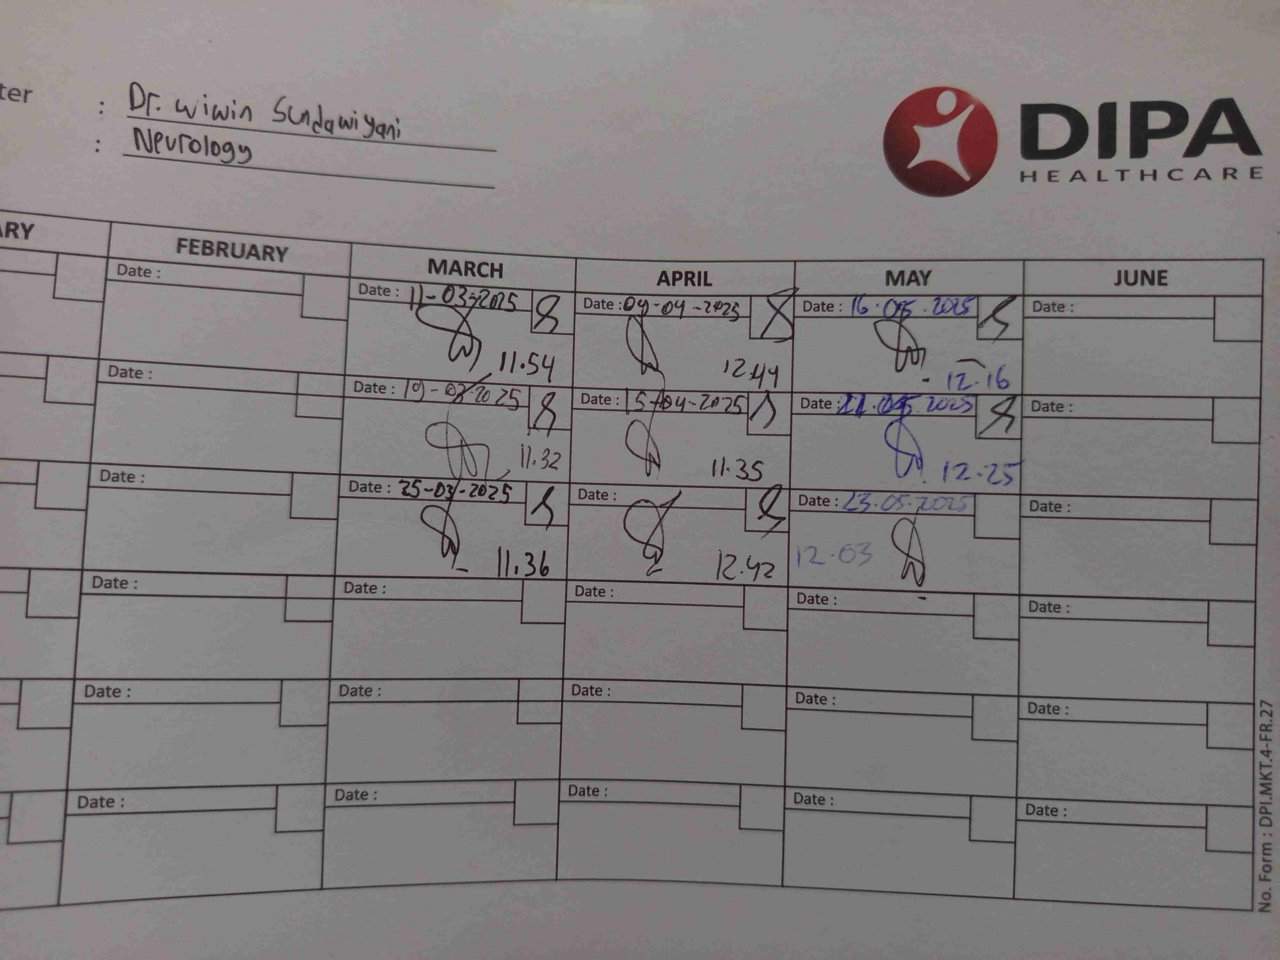 ter : Dr. Wiwin Sundawiyani
: Neurology
DIPA
HEALTHCARE
ARY FEBRUARY MARCH APRIL MAY JUNE
Date : Date : 11-03-2025 Date : 09-04-2025 Date : 16.05.2025 Date :
11.54 12.44 12.16
Date : Date : 19-03-2025 Date : 15-04-2025 Date : 05.2025 Date :
11.32 11.35 12.25
Date : Date : 25-03-2025 Date : Date : 23.05.2025 Date :
11.36 12.42 12.03
Date : Date : Date : Date : Date :
Date : Date : Date : Date : Date :
Date : Date : Date : Date : Date :
No. Form : DPI.MKT.4-FR.27